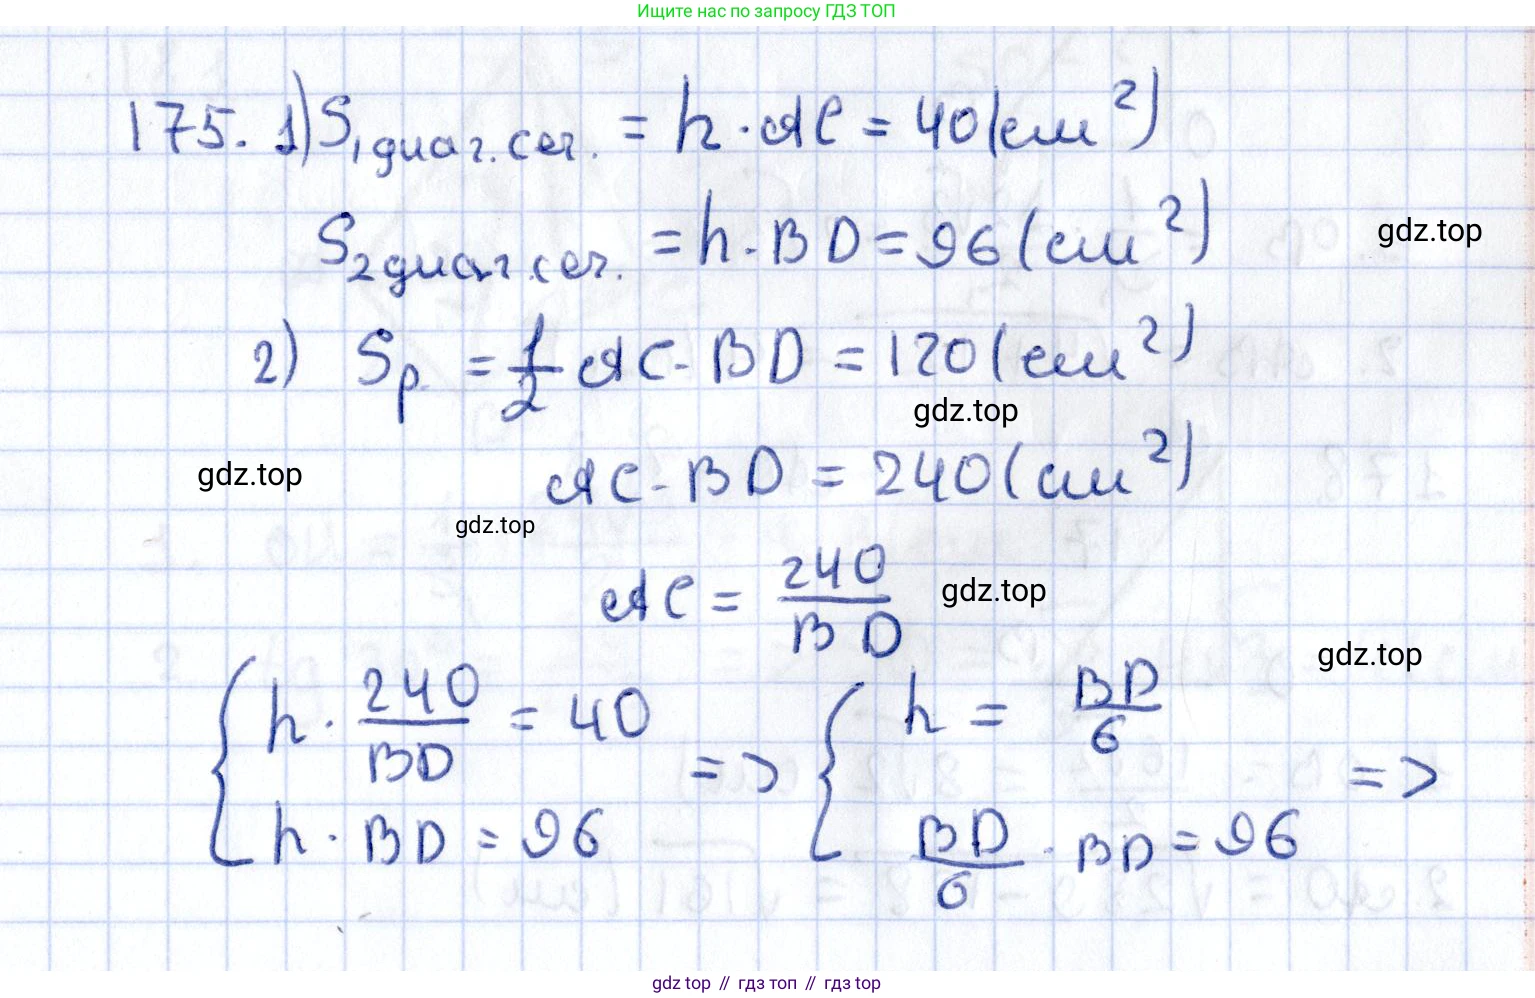 Ищите нас по запросу ГДЗ ТОП
175. 1) S₁ диаг. сеч. = h · AC = 40 (см²)
S₂ диаг. сеч. = h · BD = 96 (см²)
gdz.top
2) Sр. = 1/2 AC · BD = 120 (см²)
gdz.top
AC · BD = 240 (см²)
gdz.top
gdz.top
AC = 240/BD
gdz.top
gdz.top
{ h · 240/BD = 40 => { h = BD/6 =>
h · BD = 96 BD/6 · BD = 96
gdz top // гдз топ // гдз top